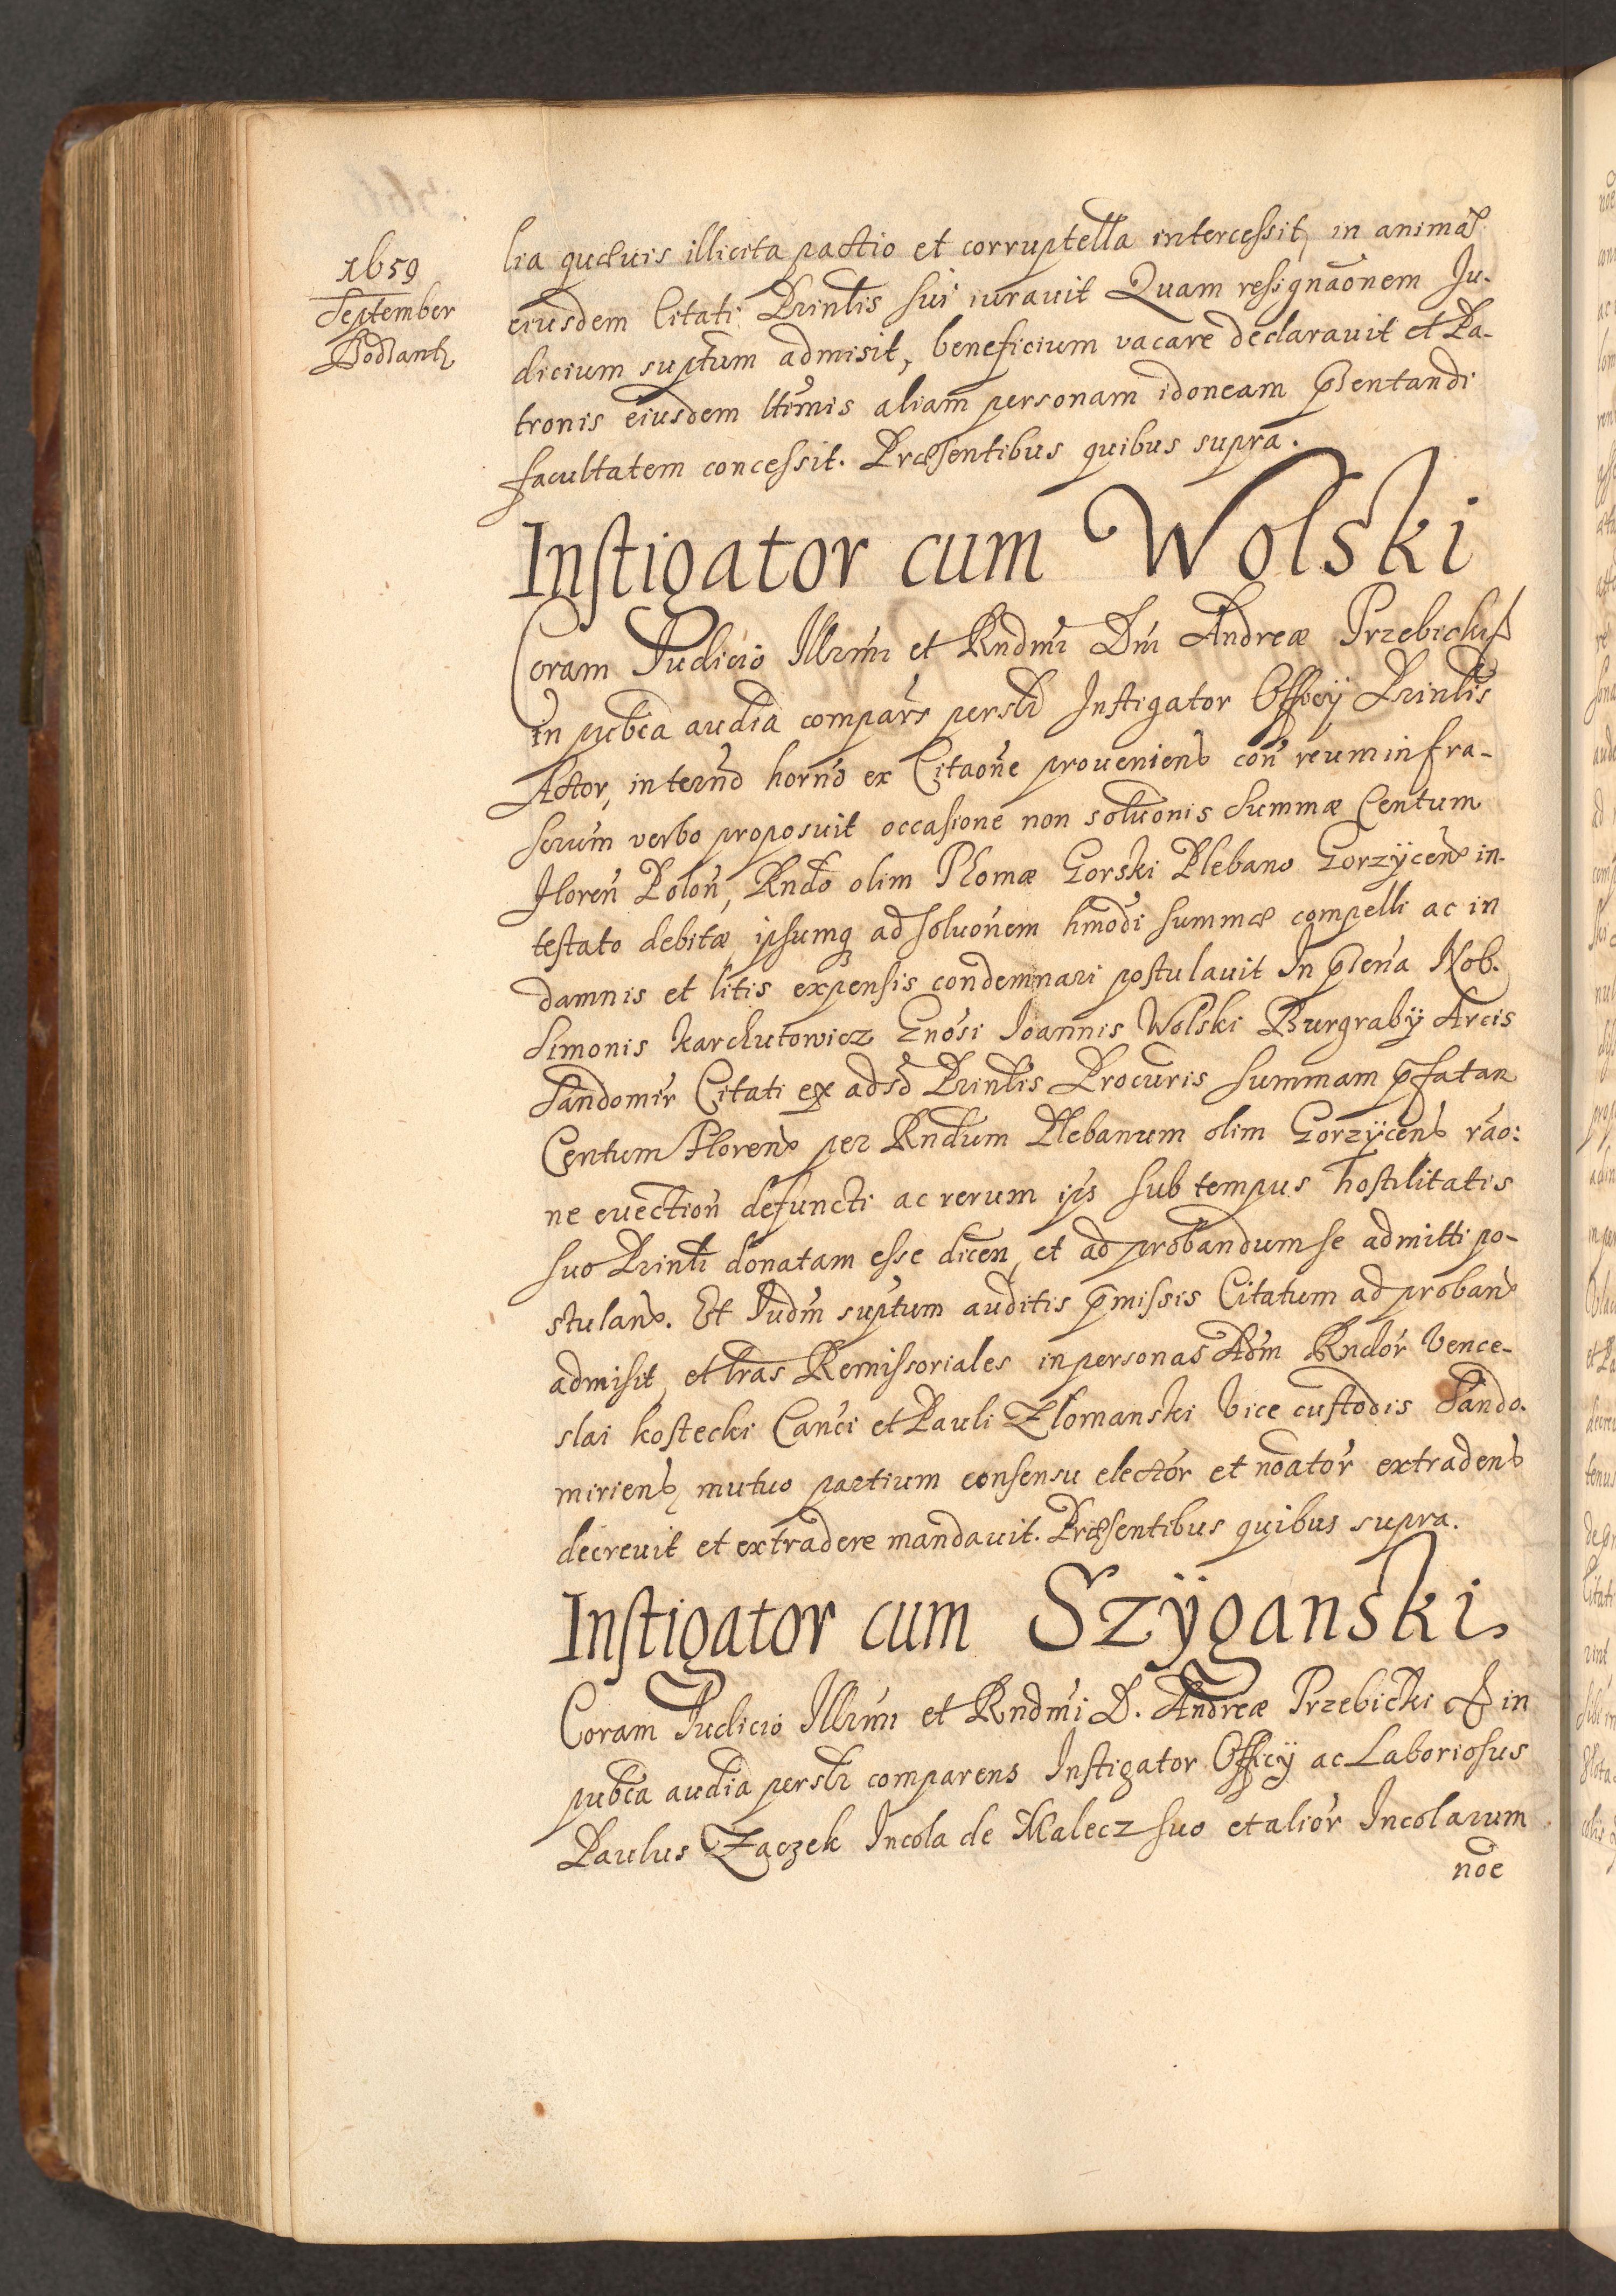 1659
September
Bodzant
lia quæuis illicita pactio et corruptella intercessit, in animã
eiusdem Citati Prinlis sui iuravit Quam resignãonem Ju-
dicium suptum admisit, beneficium vacare declaravit et Pa-
tronis eiusdem ltimis aliam personam idoneam p̃sentandi
facultatem concessit. Præsentibus quibus supra.
Instigator cum Wolski
Coram Judicio Illrmi et Rndmi Dni Andreæ Trzebicki &
in pubca audia compars persl Instigator Officÿ Prinlis
Actor, in termo horno ex Citaone proueniens con reum infra-
scrum verbo proposuit occasione non solvonis Summæ Centum
Floren Polon, Rndo olim Thomæ Gorski Plebano Gorzÿcen in-
testato debitæ, ipsumq ad solvonem hmodi summæ compelli ac in
damnis et litis expensis condemnari postulavit In p̃sena Nob.
Simonis Karchutowicz Gnosi Ioannis Wolski Burgrabÿ Arcis
Sandomir Citati ex adso Prinlis Procuris summam p̃fatan
Centum Floren per Rndum Plebanum olim Gorzÿcens rao:
ne euection defuncti ac rerum ips sub tempus hostilitatis
suo Prinli donatam esse dicen, et ad probandum se admitti po-
stulans. Et Judm suptum auditis p̃missis Citatum ad proban
admisit, et lras Remissoriales in personas Adm Rndor Vence-
slai Kostecki Canci et Pauli Zlomanski Vice custodis Sando-
miriens, mutuo partium consensu elector et noator extradens
decrevit et extradere mandavit. Præsentibus quibus supra.
Instigator cum Szÿganski
Coram Judicio Illrmi et Rndmi D. Andreæ Trzebicki & in
pubca audia persl comparens Instigator Officÿ ac Laboriosus
Paulus Zaczek Incola de Malecz suo et alior Incolarum
noe